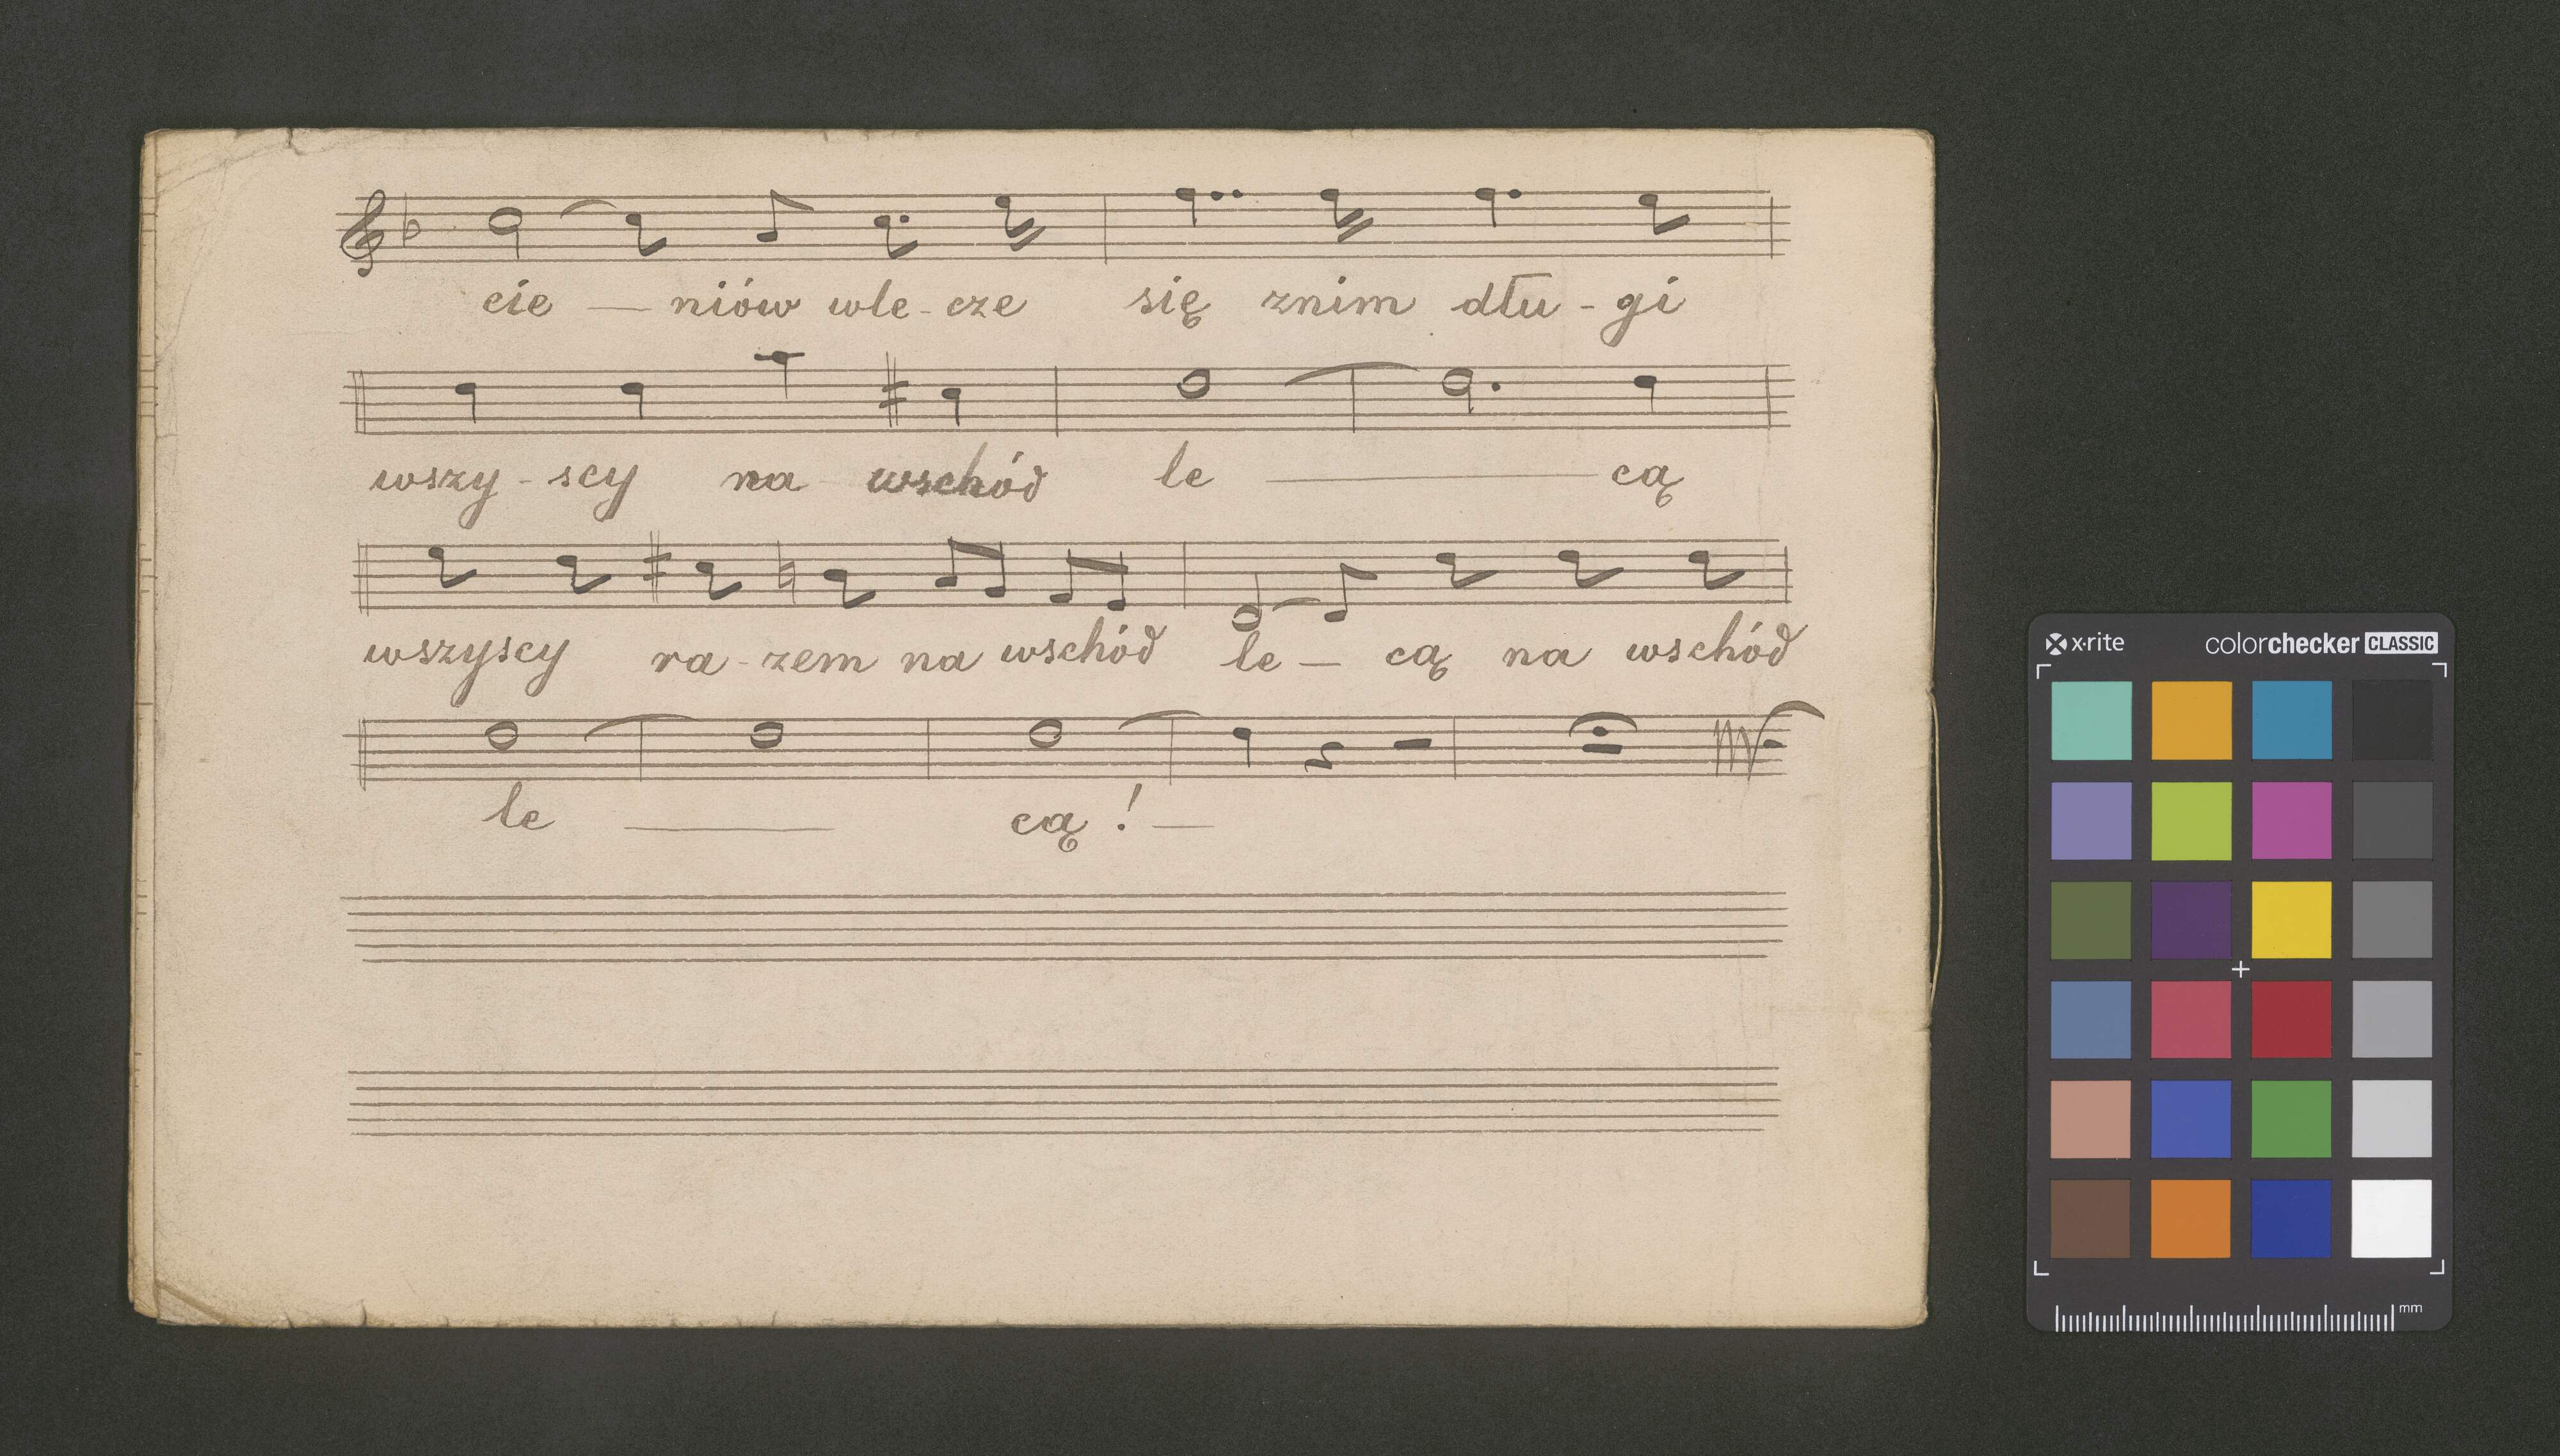 cie — niów wle - cze się znim dłu - gi
wszy - scy na wschód le — cą
wszyscy ra - zem na wschód le — cą na wschód
le — cą ! —
x·rite colorchecker CLASSIC
mm